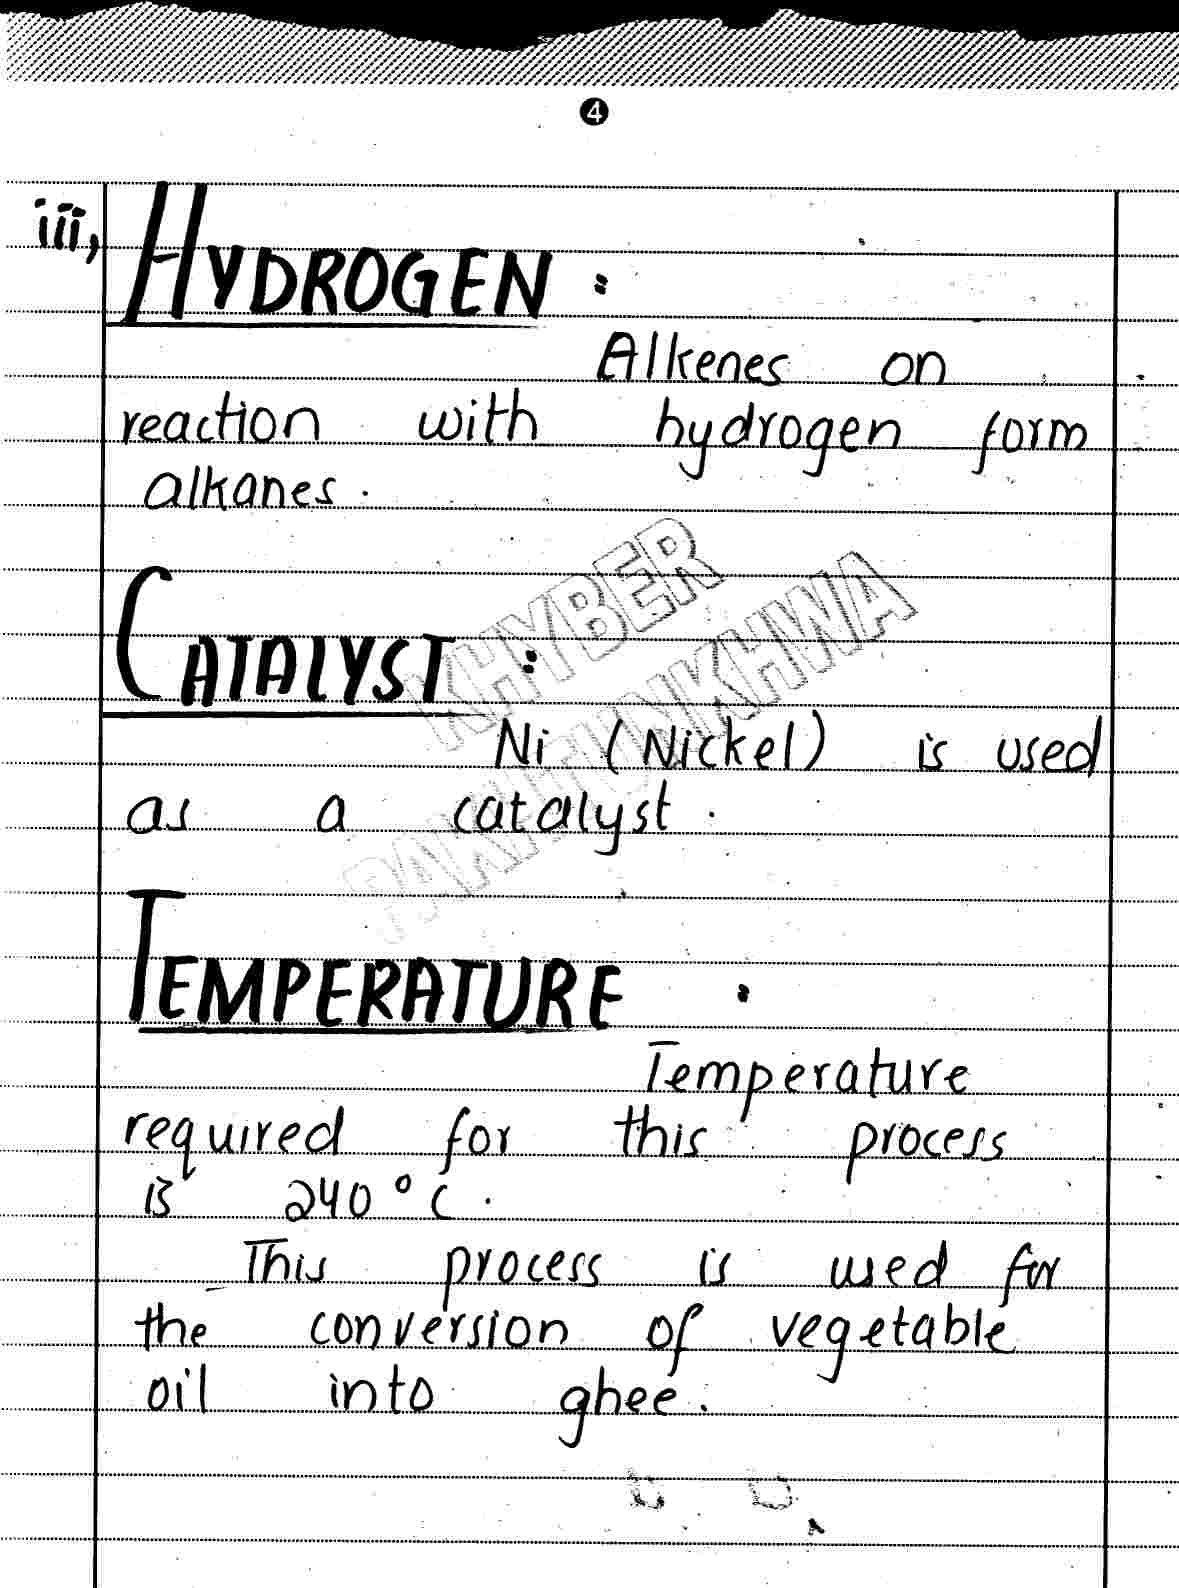 4
iii, HYDROGEN :
Alkenes on
reaction with hydrogen form
alkanes.
KHYBER
PAKHTUNKHWA
CATALYST :
Ni (Nickel) is used
as a catalyst.
TEMPERATURE .
Temperature
required for this process
is 240°C.
This process is used for
the conversion of vegetable
oil into ghee.